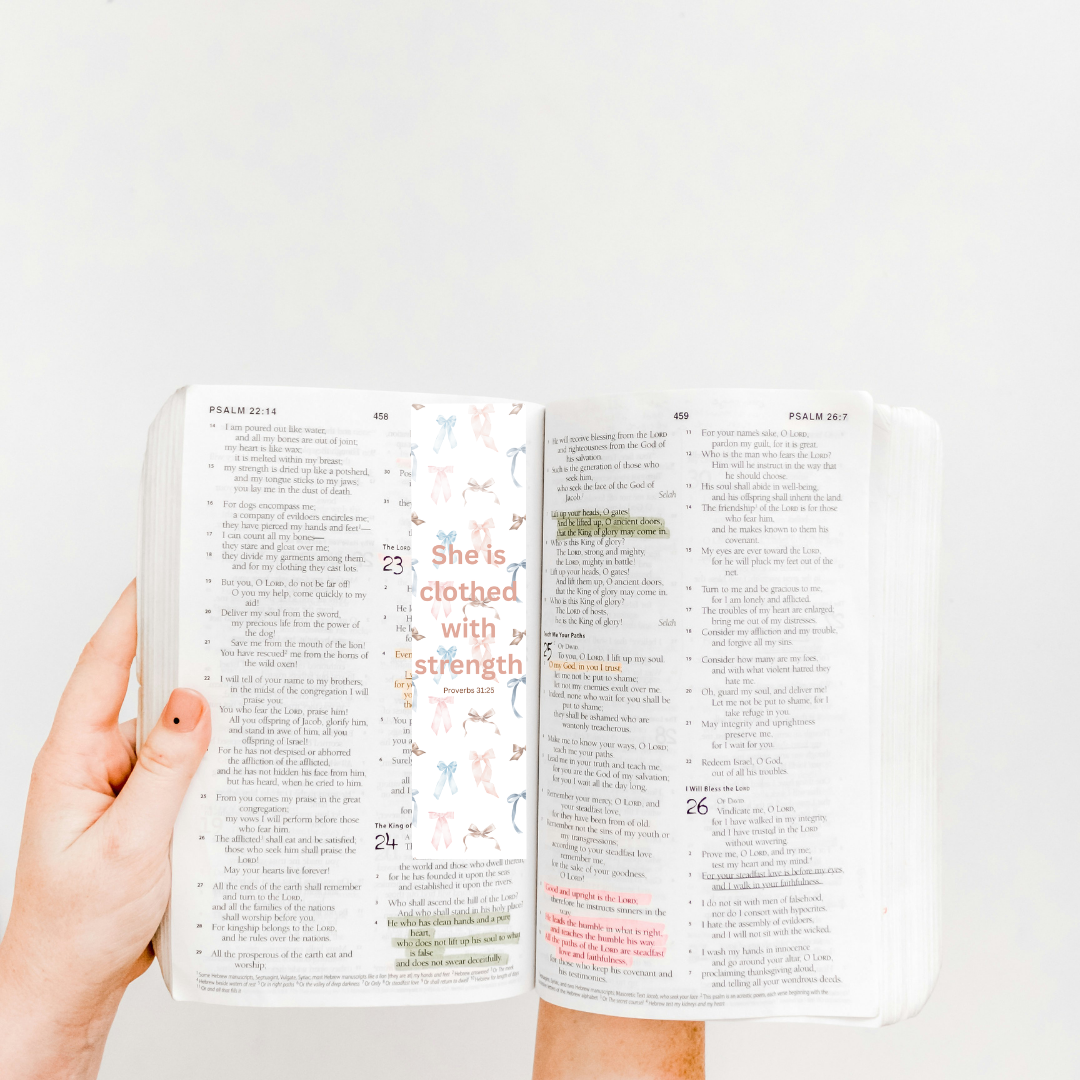 PSALM 22:14
458
14 I am poured out like water,
and all my bones are out of joint;
my heart is like wax;
it is melted within my breast;
15 my strength is dried up like a potsherd,
and my tongue sticks to my jaws;
you lay me in the dust of death.
16 For dogs encompass me;
a company of evildoers encircles me;
they have pierced my hands and feet—
17 I can count all my bones—
they stare and gloat over me;
18 they divide my garments among them,
and for my clothing they cast lots.
19 But you, O LORD, do not be far off!
O you my help, come quickly to my
aid!
20 Deliver my soul from the sword,
my precious life from the power of
the dog!
21 Save me from the mouth of the lion!
You have rescued me from the horns of
the wild oxen!
22 I will tell of your name to my brothers;
in the midst of the congregation I will
praise you:
You who fear the LORD, praise him!
All you offspring of Jacob, glorify him,
and stand in awe of him, all you
offspring of Israel!
For he has not despised or abhorred
the affliction of the afflicted,
and he has not hidden his face from him,
but has heard, when he cried to him.
25 From you comes my praise in the great
congregation;
my vows I will perform before those
who fear him.
26 The afflicted shall eat and be satisfied;
those who seek him shall praise the
LORD!
May your hearts live forever!
27 All the ends of the earth shall remember
and turn to the LORD,
and all the families of the nations
shall worship before you.
28 For kingship belongs to the LORD,
and he rules over the nations.
29 All the prosperous of the earth eat and
worship;
30
31 they
The LORD
23
2
He
3
He
4 Even
for y
5 You p
6 Surely
The King of
24
the world and those who dwell therein,
2 for he has founded it upon the seas
and established it upon the rivers.
3 Who shall ascend the hill of the LORD?
And who shall stand in his holy place?
4 He who has clean hands and a pure
heart,
who does not lift up his soul to what
is false
and does not swear deceitfully.
She is
clothed
with
strength
Proverbs 31:25
459
PSALM 26:7
He will receive blessing from the LORD
and righteousness from the God of
his salvation.
Such is the generation of those who
seek him,
who seek the face of the God of
Jacob. Selah
Lift up your heads, O gates!
And be lifted up, O ancient doors,
that the King of glory may come in.
Who is this King of glory?
The LORD, strong and mighty,
the LORD, mighty in battle!
Lift up your heads, O gates!
And lift them up, O ancient doors,
that the King of glory may come in.
Who is this King of glory?
The LORD of hosts,
he is the King of glory! Selah
Me Your Paths
25 OF DAVID.
To you, O LORD, I lift up my soul.
O my God, in you I trust;
let me not be put to shame;
let not my enemies exult over me.
Indeed, none who wait for you shall be
put to shame;
they shall be ashamed who are
wantonly treacherous.
Make me to know your ways, O LORD;
teach me your paths.
Lead me in your truth and teach me,
for you are the God of my salvation;
for you I wait all the day long.
Remember your mercy, O LORD, and
your steadfast love,
for they have been from of old.
Remember not the sins of my youth or
my transgressions;
according to your steadfast love
remember me,
for the sake of your goodness,
O LORD!
Good and upright is the LORD;
therefore he instructs sinners in the
way.
He leads the humble in what is right,
and teaches the humble his way.
All the paths of the LORD are steadfast
love and faithfulness,
for those who keep his covenant and
his testimonies.
11 For your name's sake, O LORD,
pardon my guilt, for it is great.
12 Who is the man who fears the LORD?
Him will he instruct in the way that
he should choose.
13 His soul shall abide in well-being,
and his offspring shall inherit the land.
14 The friendship of the LORD is for those
who fear him,
and he makes known to them his
covenant.
15 My eyes are ever toward the LORD,
for he will pluck my feet out of the
net.
16 Turn to me and be gracious to me,
for I am lonely and afflicted.
17 The troubles of my heart are enlarged;
bring me out of my distresses.
18 Consider my affliction and my trouble,
and forgive all my sins.
19 Consider how many are my foes,
and with what violent hatred they
hate me.
20 Oh, guard my soul, and deliver me!
Let me not be put to shame, for I
take refuge in you.
21 May integrity and uprightness
preserve me,
for I wait for you.
22 Redeem Israel, O God,
out of all his troubles.
I Will Bless the LORD
26 OF DAVID.
Vindicate me, O LORD,
for I have walked in my integrity,
and I have trusted in the LORD
without wavering.
2 Prove me, O LORD, and try me;
test my heart and my mind.
3 For your steadfast love is before my eyes,
and I walk in your faithfulness.
4 I do not sit with men of falsehood,
nor do I consort with hypocrites.
5 I hate the assembly of evildoers,
and I will not sit with the wicked.
6 I wash my hands in innocence
and go around your altar, O LORD,
7 proclaiming thanksgiving aloud,
and telling all your wondrous deeds.